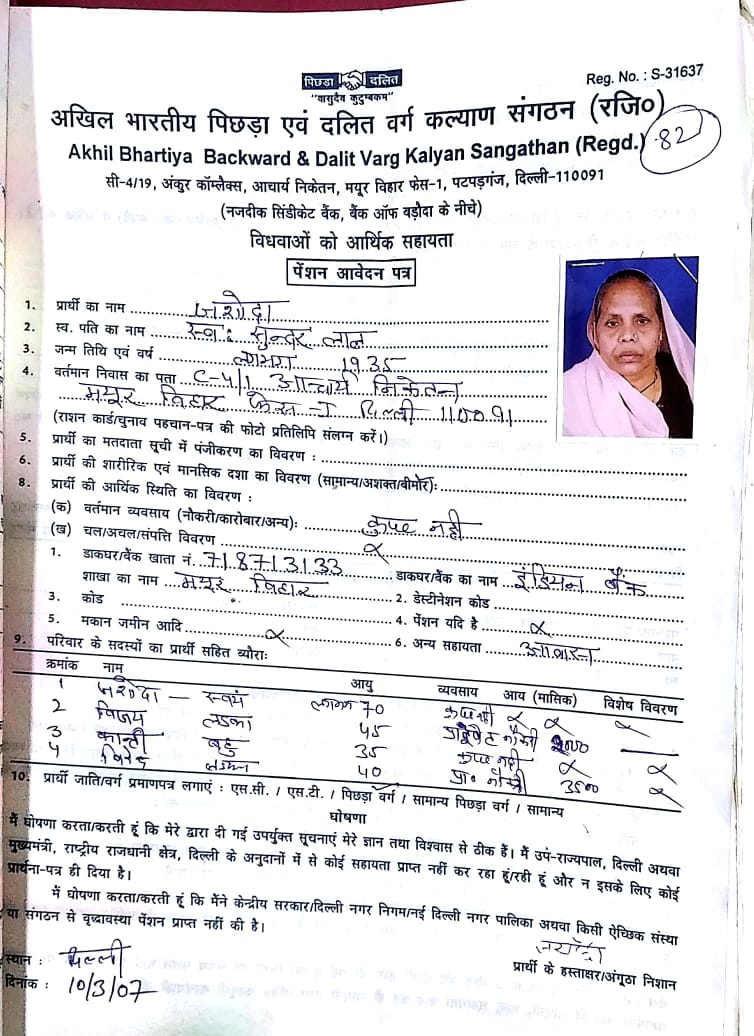 पिछड़ा दलित
"वासुदैव कुटुम्बकम"
Reg. No. : S-31637
अखिल भारतीय पिछड़ा एवं दलित वर्ग कल्याण संगठन (रजि०)
Akhil Bhartiya Backward & Dalit Varg Kalyan Sangathan (Regd.)
82
सी-4/19, अंकुर कॉम्लैक्स, आचार्य निकेतन, मयूर विहार फेस-1, पटपड़गंज, दिल्ली-110091
(नजदीक सिंडीकेट बैंक, बैंक ऑफ बड़ौदा के नीचे)
विधवाओं को आर्थिक सहायता
पेंशन आवेदन पत्र
1. प्रार्थी का नाम जशोदा
2. स्व. पति का नाम स्व: सुन्दर लाल
3. जन्म तिथि एवं वर्ष लगभग 1935
4. वर्तमान निवास का पता C-4/1 आचार्य निकेतन
मयूर विहार फेस-I दिल्ली 110091
(राशन कार्ड/चुनाव पहचान-पत्र की फोटो प्रतिलिपि संलग्न करें।)
5. प्रार्थी का मतदाता सूची में पंजीकरण का विवरण :
6. प्रार्थी की शारीरिक एवं मानसिक दशा का विवरण (सामान्य/अशक्त/बीमार):
8. प्रार्थी की आर्थिक स्थिति का विवरण :
(क) वर्तमान व्यवसाय (नौकरी/कारोबार/अन्य): कुछ नहीं
(ख) चल/अचल/संपत्ति विवरण
1. डाकघर/बैंक खाता नं. 718713133 डाकघर/बैंक का नाम इंडियन बैंक
शाखा का नाम मयूर विहार 2. डेस्टीनेशन कोड
3. कोड 4. पेंशन यदि है
5. मकान जमीन आदि 6. अन्य सहायता
9. परिवार के सदस्यों का प्रार्थी सहित ब्यौराः
क्रमांक नाम आयु व्यवसाय आय (मासिक) विशेष विवरण
1 जशोदा - स्वयं लगभग 70 कुछ नहीं
2 विजय लडका 45 प्राइवेट नौकरी 2000
3 कान्ती बहु 35 कुछ नहीं
4 विनोद लडका 40 प्रा० नौकरी 3500
10. प्रार्थी जाति/वर्ग प्रमाणपत्र लगाएं : एस.सी. / एस.टी. / पिछड़ा वर्ग / सामान्य पिछड़ा वर्ग / सामान्य
घोषणा
मैं घोषणा करता/करती हूं कि मेरे द्वारा दी गई उपर्युक्त सूचनाएं मेरे ज्ञान तथा विश्वास से ठीक हैं। मैं उप-राज्यपाल, दिल्ली अथवा
मुख्यमंत्री, राष्ट्रीय राजधानी क्षेत्र, दिल्ली के अनुदानों में से कोई सहायता प्राप्त नहीं कर रहा हूं/रही हूं और न इसके लिए कोई
प्रार्थना-पत्र ही दिया है।
मैं घोषणा करता/करती हूं कि मैंने केन्द्रीय सरकार/दिल्ली नगर निगम/नई दिल्ली नगर पालिका अथवा किसी ऐच्छिक संस्था
या संगठन से वृद्धावस्था पेंशन प्राप्त नहीं की है।
जशोदा
स्थान : दिल्ली प्रार्थी के हस्ताक्षर/अंगूठा निशान
दिनांक : 10/3/07